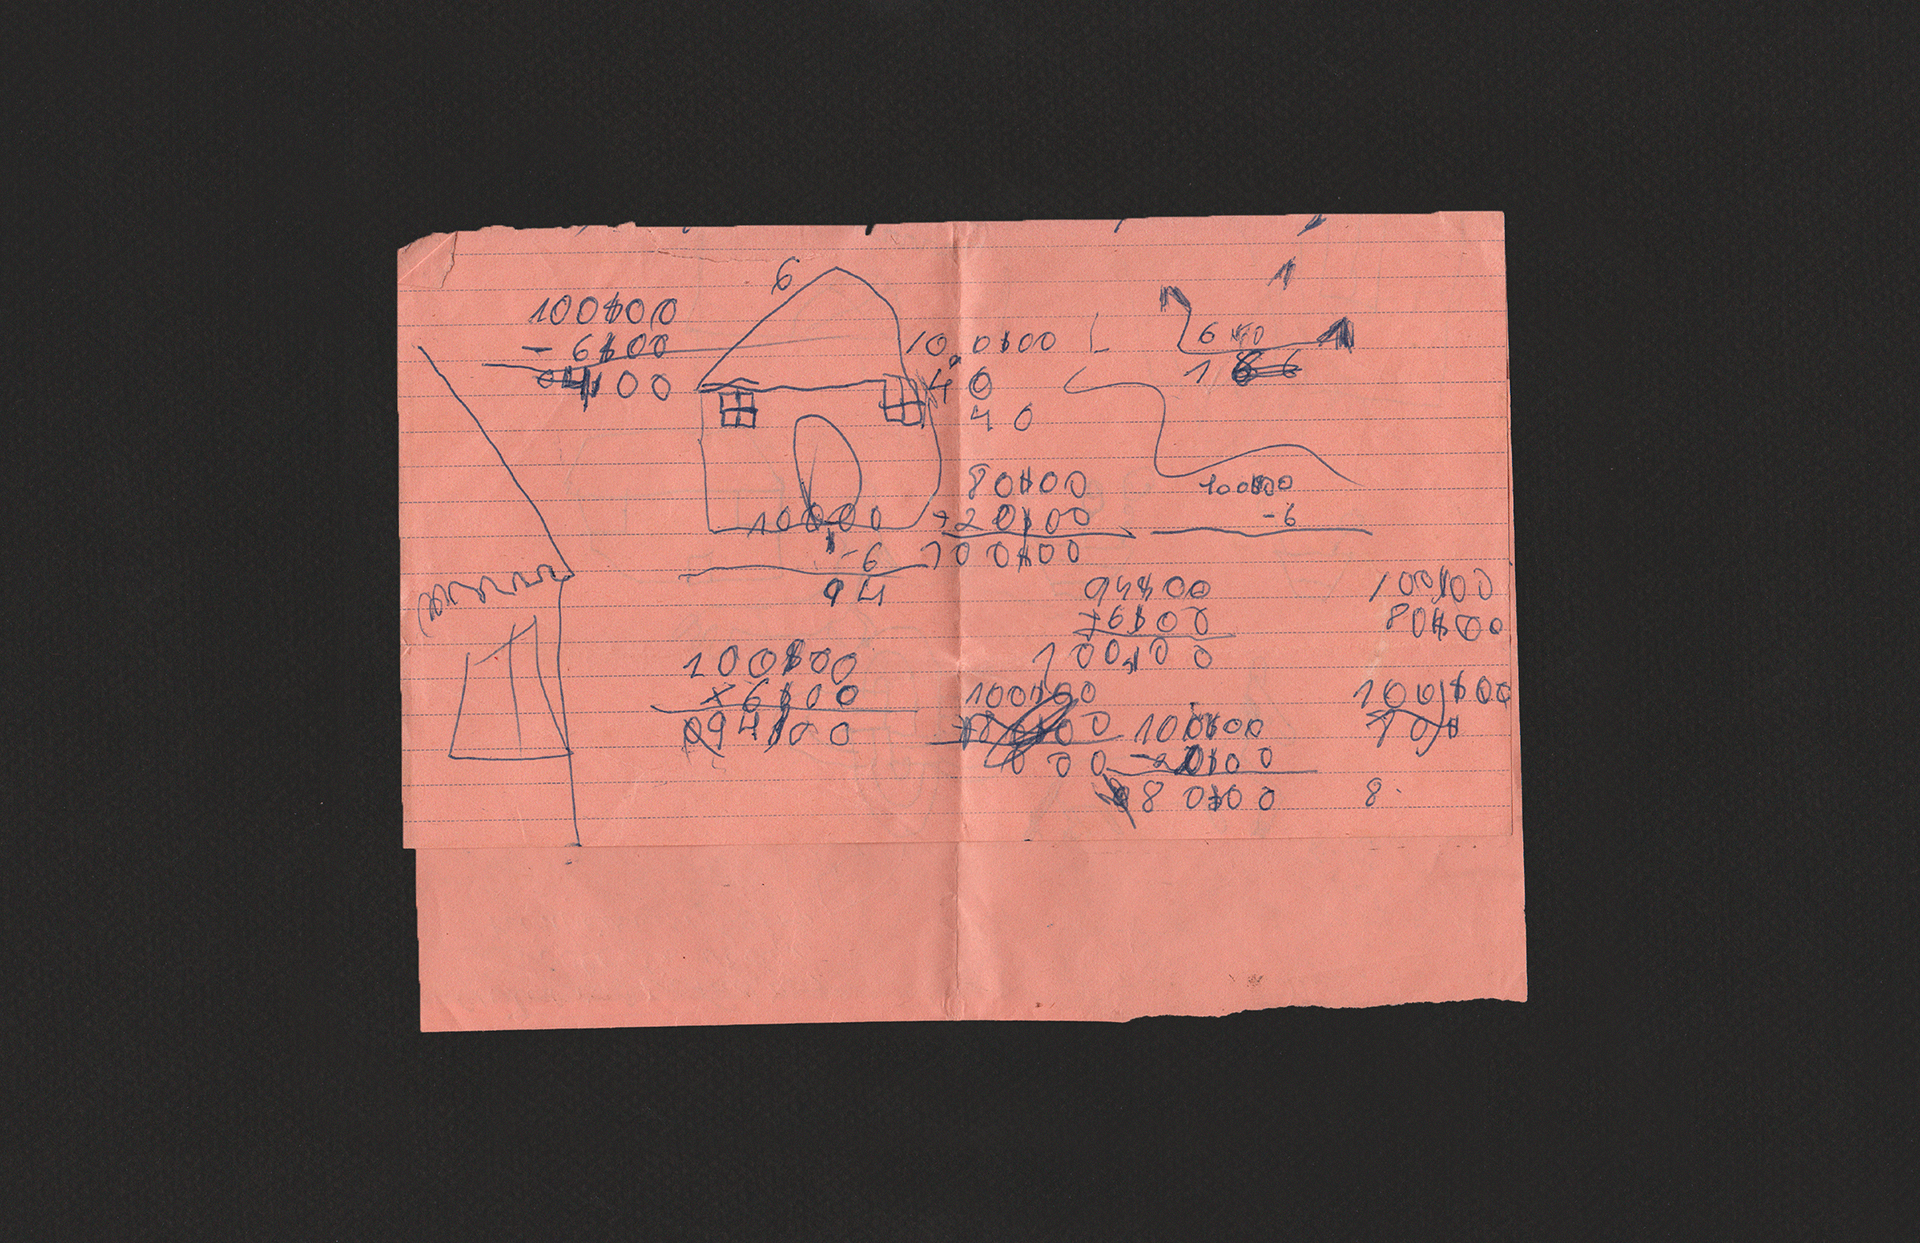 6
100$00
- 6$00
94$00
100$00
40
40
6$00
1
80$00
+20$00
100$00
100$00
-6
100$00
-6
94
94$00
+6$00
100$00
100$00
80$00
100$00
×6$00
094$00
100$00
000
100$00
-20$00
80$00
100$00
70$
8